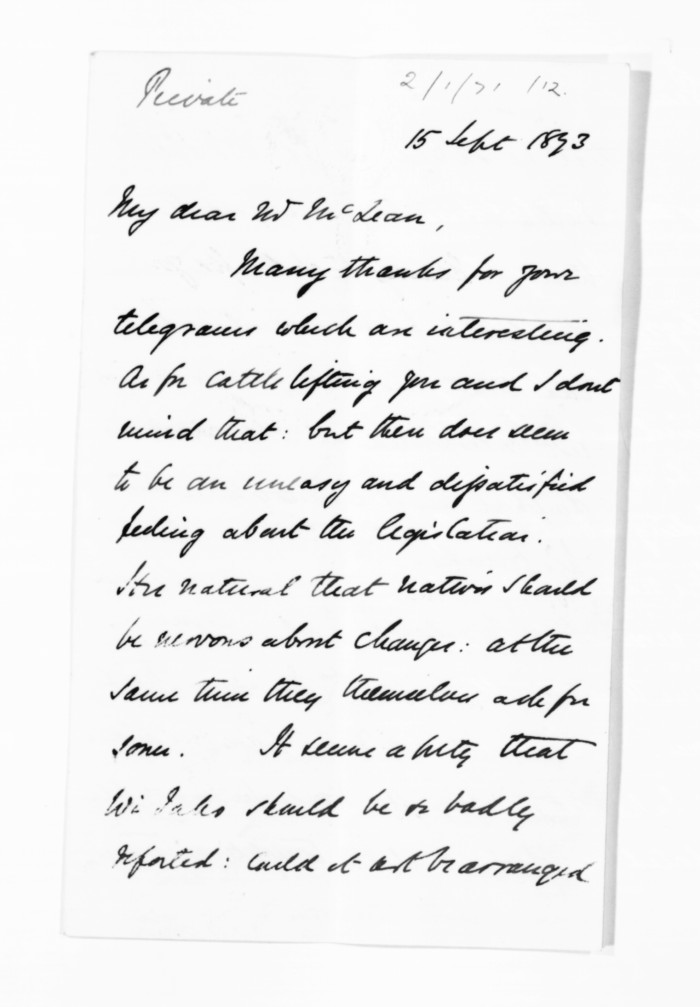 Private
2/1/71 /12.
15 Sept 1873
My dear Mr McLean,
Many thanks for your
telegrams which are interesting.
As for Cattle lifting you and I dont
mind that: but there does seem
to be an uneasy and dissatisfied
feeling about the legislation.
It is natural that natives should
be nervous about changes: at the
same time they themselves ask for
some. It seems a pity that
Wi Tako should be so badly
reported: Could it not be arranged